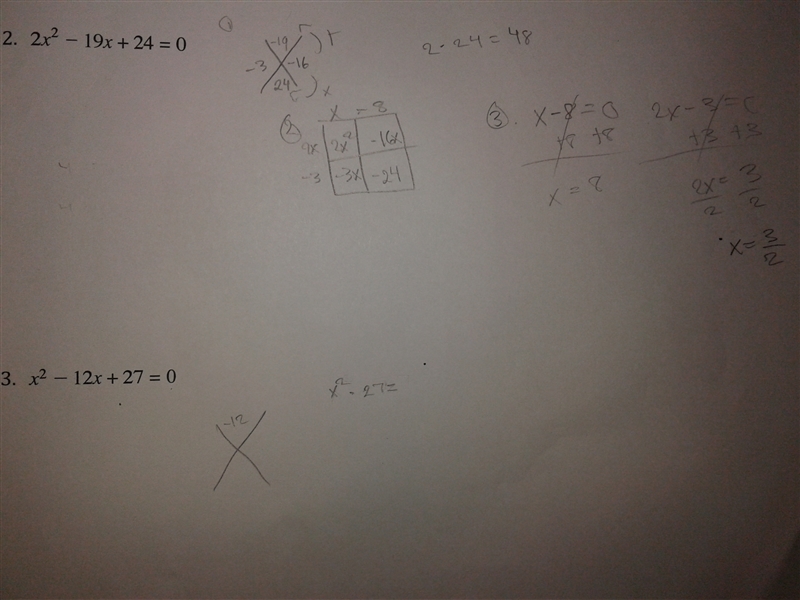 2. 2x² − 19x + 24 = 0
①
-19
-3 -16
24
+
x
2 · 24 = 48
②
x - 8
2x 2x² -16x
-3 -3x -24
③. x - 8 = 0 2x - 3 = 0
+8 +8 +3 +3
x = 8 2x/2 = 3/2
x = 3/2
3. x² − 12x + 27 = 0
-12
x² · 27 =